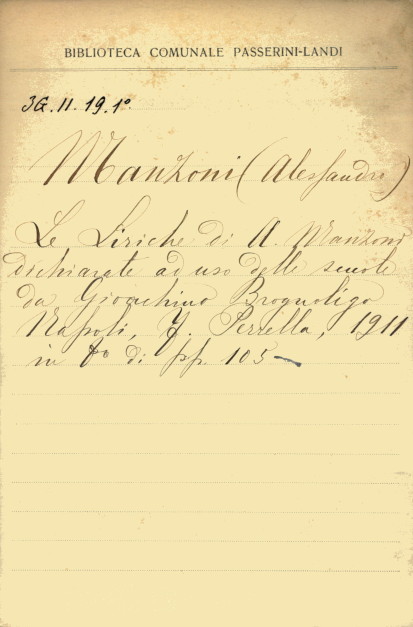 BIBLIOTECA COMUNALE PASSERINI-LANDI
3G. II. 19. 1º
Manzoni (Alessandro)
Le Liriche di A. Manzoni
dichiarate ad uso delle scuole
da Gioachino Brognoligo
Napoli, F. Perrella, 1911
in 8º di pp. 105